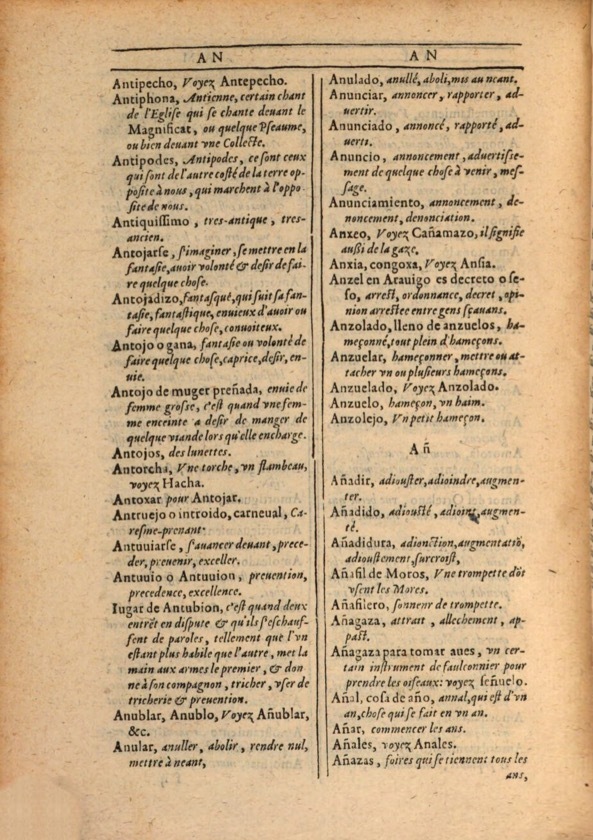 AN
Antipecho, Voyez Antepecho.
Antiphona, Antienne, certain chant
de l'Eglise qui se chante deuant le
Magnificat, ou quelque Pseaume,
ou bien deuant vne Collecte.
Antipodes, Antipodes, ce sont ceux
qui sont de l'autre costé de la terre op-
posite à nous, qui marchent à l'oppo-
site de nous.
Antiquissimo, tres-antique, tres-
ancien.
Antojarse, s'imaginer, se mettre en la
fantasie, auoir volonté & desir de fai-
re quelque chose.
Antojadizo, fantasqué, qui suit sa fan-
tasie, fantastique, enuieux d'auoir ou
faire quelque chose, conuoiteux.
Antojo o gana, fantasie ou volonté de
faire quelque chose, caprice, desir, en-
uie.
Antojo de muger preñada, enuie de
femme grosse, c'est quand vne fem-
me enceinte a desir de manger de
quelque viande lors qu'elle encharge.
Antojos, des lunettes.
Antorcha, Vne torche, vn flambeau,
voyez Hacha.
Antoxar pour Antojar.
Antruejo o introido, carneual, Ca-
resme-prenant.
Antuuiarse, s'auancer deuant, prece-
der, preuenir, exceller.
Antuuio o Antuuion, preuention,
precedence, excellence.
Iugar de Antubion, c'est quand deux
entrēt en dispute & qu'ils s'eschauf-
fent de paroles, tellement que l'vn
estant plus habile que l'autre, met la
main aux armes le premier, & don
ne à son compagnon, tricher, vser de
tricherie & preuention.
Anublar, Anublo, Voyez Añublar,
&c.
Anular, anuller, abolir, rendre nul,
mettre à neant,
AN
Anulado, anullé, aboli, mis au neant.
Anunciar, annoncer, rapporter, ad-
uertir.
Anunciado, annoncé, rapporté, ad-
uerti.
Anuncio, annoncement, aduertisse-
ment de quelque chose à venir, mes-
sage.
Anunciamiento, annoncement, de-
noncement, denonciation.
Anxeo, Voyez Cañamazo, il signifie
außi de la gaze.
Anxia, congoxa, Voyez Ansia.
Anzel en Arauigo es decreto o se-
so, arrest, ordonnance, decret, opi-
nion arrestee entre gens sçauans.
Anzolado, lleno de anzuelos, ha-
meçonné, tout plein d'hameçons.
Anzuelar, hameçonner, mettre ou at-
tacher vn ou plusieurs hameçons.
Anzuelado, Voyez Anzolado.
Anzuelo, hameçon, vn haim.
Anzolejo, Vn petit hameçon.
Añ
Añadir, adiouster, adioindre, augmen-
ter.
Añadido, adiousté, adioint, augmen-
té.
Añadidura, adionction, augmentatiō,
adioustement, surcroist,
Añafil de Moros, Vne trompette dōt
vsent les Mores.
Añafilero, sonneur de trompette.
Añagaza, attrait, allechement, ap-
past.
Añagaza para tomar aues, vn cer-
tain instrument de faulconnier pour
prendre les oiseaux: voyez señuelo.
Añal, cosa de año, annal, qui est d'vn
an, chose qui se fait en vn an.
Añar, commencer les ans.
Añales, voyez Anales.
Añazas, foires qui se tiennent tous les
ans,